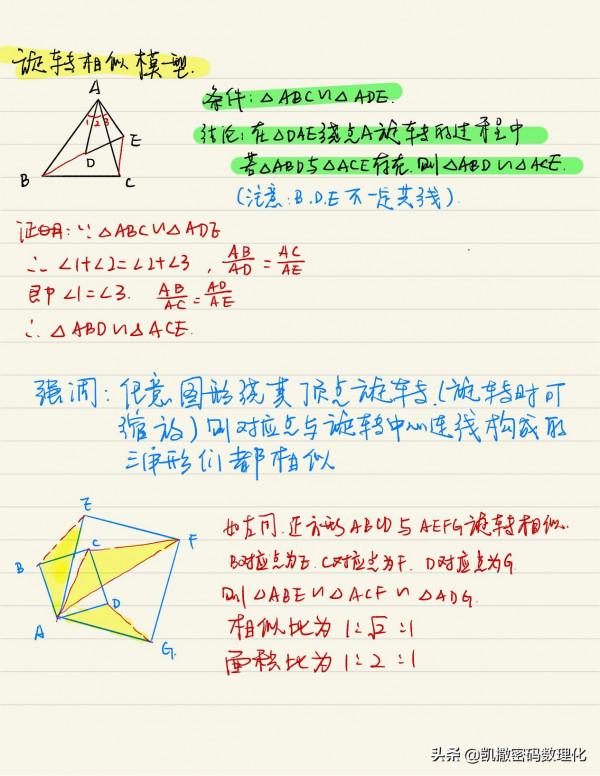 旋转相似模型.
A
1 2 3
E
D
B
C
条件:△ABC∽△ADE.
结论:在△DAE绕点A旋转的过程中
若△ABD与△ACE存在.则△ABD∽△ACE.
(注意:B.D.E不一定共线).
证明:∵△ABC∽△ADE
∴∠1+∠2=∠2+∠3, AB/AD=AC/AE
即∠1=∠3. AB/AC=AD/AE
∴△ABD∽△ACE.
强调:任意图形绕某顶点旋转.(旋转时可
缩放)则对应点与旋转中心连线构成的
三角形们都相似
E
C
F
B
D
A
G.
如左图.正方形ABCD与AEFG旋转相似.
B对应点为E.C对应点为F.D对应点为G
则△ABE∽△ACF∽△ADG.
相似比为1:√2:1
面积比为1:2:1
头条@凯撒密码数理化